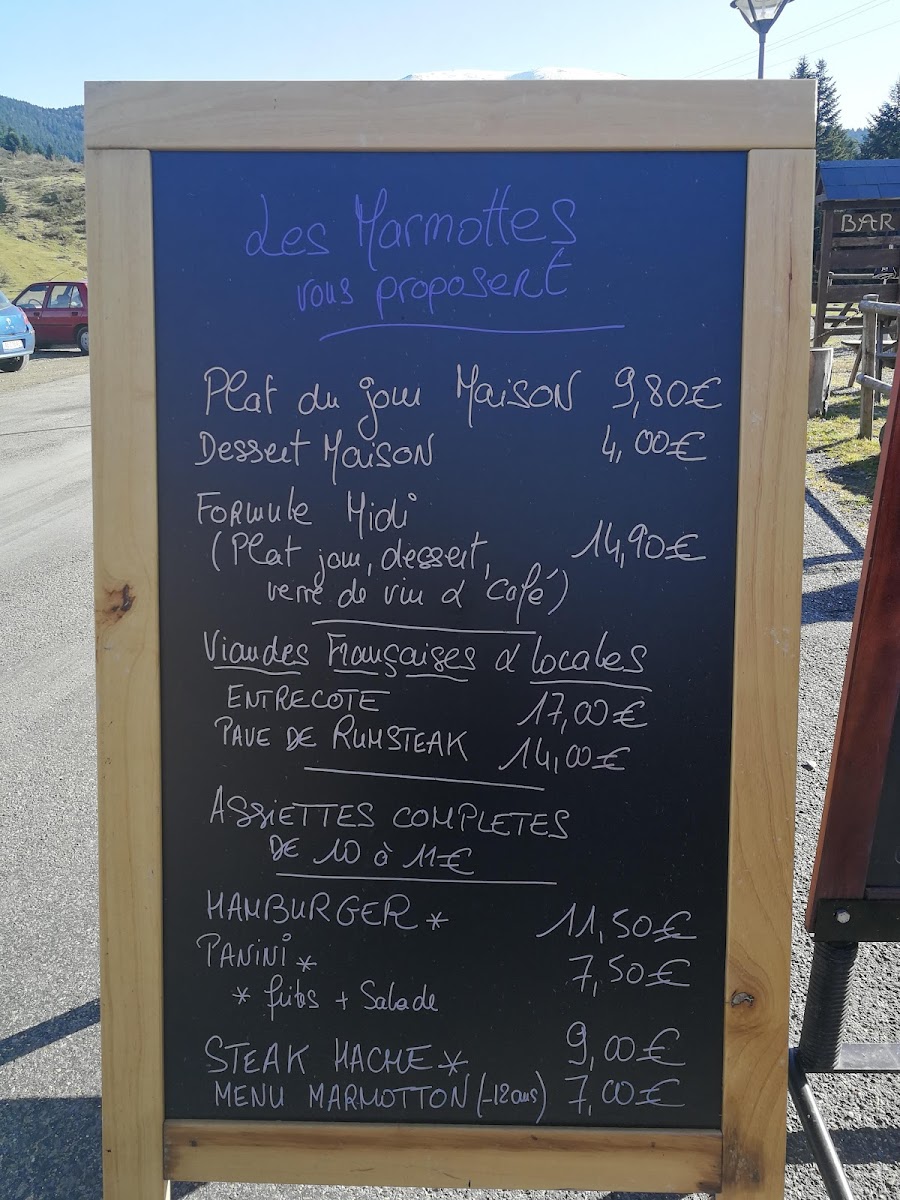 Les Marmottes
vous proposent
Plat du jour MAISON 9,80€
Dessert MAISON 4,00€
FORMULE Midi
(Plat jour, dessert, 14,90€
verre de vin & Café)
Viandes Françaises & locales
ENTRECOTE 17,00€
PAVE DE RUMSTEAK 14,00€
ASSIETTES COMPLETES
DE 10 à 11€
HAMBURGER * 11,50€
PANINI * 7,50€
* frites + Salade
STEAK HACHE * 9,00€
MENU MARMOTTON (-12ans) 7,00€
BAR